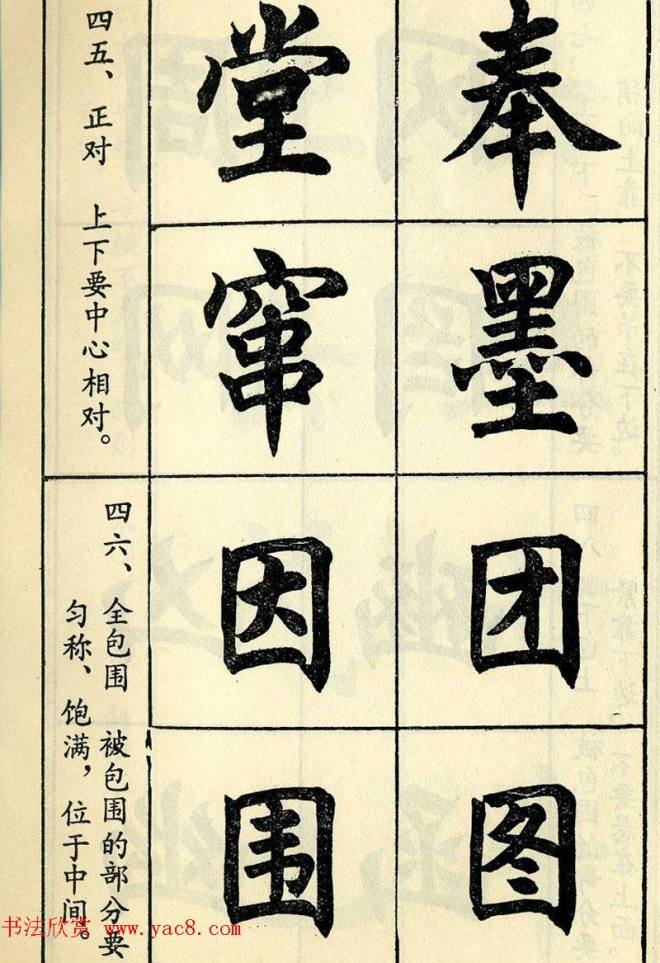 奉墨团图
堂窜因围
四五、正对 上下要中心相对。
四六、全包围 被包围的部分要
匀称、饱满，位于中间。
书法欣赏 www.yac8.com